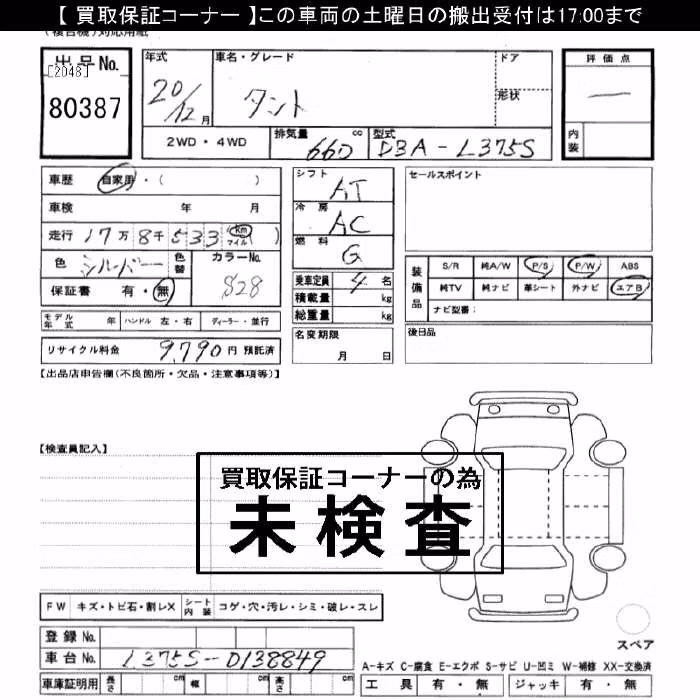 【 買取保証コーナー 】この車両の土曜日の搬出受付は17:00まで
(複合機)対応用紙
出品No.
[2048]
80387
年式
20/12月
車名・グレード
タント
ドア
形状
2WD・4WD
排気量
660 cc
型式
DBA-L375S
評価点
—
内装
車歴 自家用・( )
車検 年 月
走行 17万8千533 Km マイル ( )
色 シルバー
色替
カラーNo.
S28
保証書 有・無
シフト AT
冷房 AC
燃料 G
乗車定員 4名
積載量 kg
総重量 kg
セールスポイント
装備品
S/R 純A/W P/S P/W ABS
純TV 純ナビ 革シート 外ナビ エアB
ナビ型番:
モデル年式 年 ハンドル 左・右 ディーラー・並行
リサイクル料金 9,790円 預託済
名変期限
月 日
後日品
【出品店申告欄(不良箇所・欠品・注意事項等)】
【検査員記入】
買取保証コーナーの為
未検査
FW キズ・トビ石・割レX シート内装 コゲ・穴・汚レ・シミ・破レ・スレ
スペア
登録No.
車台No. L375S-0138849
A-キズ C-腐食 E-エクボ S-サビ U-凹ミ W-補修 XX-交換済
車庫証明用 長さ cm 幅 cm 高さ cm
工具 有・無 ジャッキ 有・無